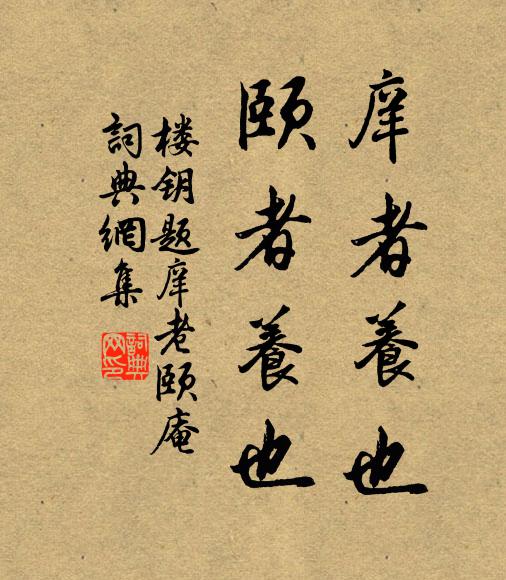 庠者養也
頤者養也
楼钥题庠老頤庵
詞典網集
詞典
网印